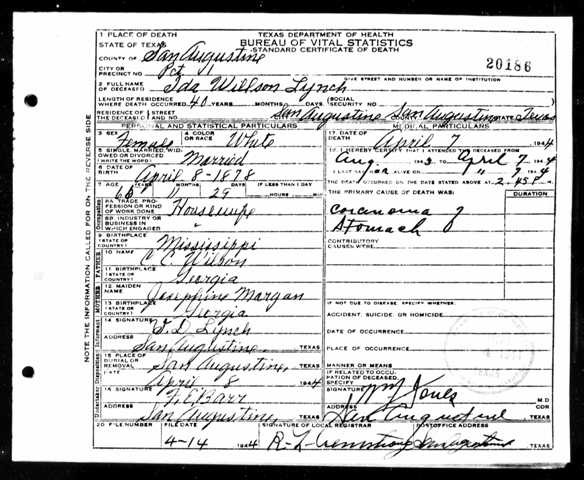 TEXAS DEPARTMENT OF HEALTH
BUREAU OF VITAL STATISTICS
STANDARD CERTIFICATE OF DEATH
20186
1 PLACE OF DEATH
STATE OF TEXAS
COUNTY OF San Augustine
CITY OR PRECINCT NO. Pct 1
GIVE STREET AND NUMBER OR NAME OF INSTITUTION
2 FULL NAME OF DECEASED Ida Willson Lynch
LENGTH OF RESIDENCE WHERE DEATH OCCURRED 40 YEARS MONTHS DAYS SOCIAL SECURITY NO.
RESIDENCE OF THE DECEASED STREET AND NO. San Augustine San Augustine STATE Texas
PERSONAL AND STATISTICAL PARTICULARS
3 SEX Female 4 COLOR OR RACE White
5 SINGLE, MARRIED, WIDOWED OR DIVORCED (WRITE THE WORD) Married
6 DATE OF BIRTH April 8-1878
7 AGE YEARS 65 MONTHS 11 DAYS 29 IF LESS THAN 1 DAY HOURS MIN
8A TRADE, PROFESSION OR KIND OF WORK DONE Housewife
8B INDUSTRY OR BUSINESS IN WHICH ENGAGED "
9 BIRTHPLACE (STATE OR COUNTRY) Mississippi
10 NAME C C Wilson
11 BIRTHPLACE (STATE OR COUNTRY) Georgia
12 MAIDEN NAME Josephine Margan
13 BIRTHPLACE (STATE OR COUNTRY) Georgia
14 SIGNATURE Lynch
ADDRESS San Augustine TEXAS
15 PLACE OF BURIAL OR REMOVAL San Augustine, TEXAS
DATE April 8 1944
16 SIGNATURE Barr
ADDRESS San Augustine, TEXAS
MEDICAL PARTICULARS
17 DATE OF DEATH April 7 1944
18 I HEREBY CERTIFY THAT I ATTENDED THE DECEASED FROM
Aug 1943 TO April 7 1944
I LAST SAW HER ALIVE ON " 7 1944
THE DEATH OCCURRED ON THE DATE STATED ABOVE AT 2:45 P M.
THE PRIMARY CAUSE OF DEATH WAS: DURATION
Carcinoma of
Stomach
CONTRIBUTORY CAUSES WERE:
IF NOT DUE TO DISEASE, SPECIFY WHETHER:
ACCIDENT, SUICIDE, OR HOMICIDE
DATE OF OCCURRENCE
PLACE OF OCCURRENCE
MANNER OR MEANS
IF RELATED TO OCCUPATION OF DECEASED, SPECIFY
SIGNATURE Jones M.D. COR
ADDRESS San Augustine TEXAS
20 FILE NUMBER FILE DATE 4-14 1944 SIGNATURE OF LOCAL REGISTRAR R. L. Armstrong POSTOFFICE ADDRESS San Augustine TEXAS
NOTE THE INFORMATION CALLED FOR ON THE REVERSE SIDE